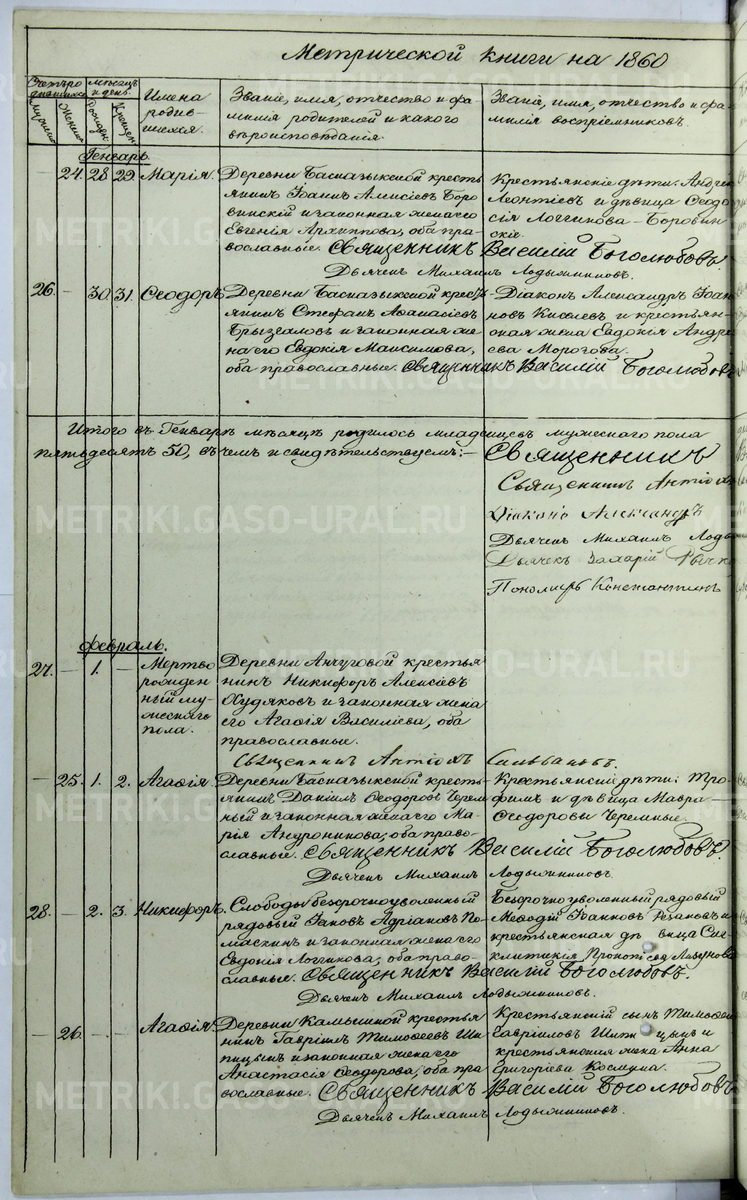 Метрической книги на 1860
Счетъ родившихся.
Мѣсяцъ и день.
Имена родившихся.
Званіе, имя, отчество и фа-
милія родителей и какого
вѣроисповѣданія.
Званіе, имя, отчество и фа-
милія воспріемниковъ.
Мужеска Женска Рожден. Крещен.
Генварь.
— 24. 28. 29. Марія.
Деревни Баспазыкской кресть
янинъ Іоаннъ Алексіевъ Боро
винскій и законная жена его
Евгенія Архиппова, оба пра-
вославные. Священникъ Василій Боголюбовъ.
Крестьянскіе дѣти: Андрей
Леонтіевъ и дѣвица Ѳеодо
сія Логгинова — Боровин
скіе.
Дьячекъ Михаилъ Лодыжниковъ.
26. — 30. 31. Ѳеодоръ.
Деревни Баспазыкской крестья
янинъ Стефанъ Аѳанасіевъ
Брызгаловъ и законная же
на его Евдокія Максимова,
оба православные. Священникъ Василій Боголюбовъ
Діаконъ Александръ Іоан
новъ Киселевъ и крестьян-
ская жена Евдокія Андре
ева Морозова.
Итого въ Генварѣ мѣсяцѣ родилось младенцевъ мужескаго пола
пятьдесятъ 50, въ чемъ и свидѣтельствуемъ:— Священникъ
Священникъ Антіохъ
Діаконъ Александръ
Дьячекъ Михаилъ Лоды
Дьячекъ Захарій Рычко
Пономарь Константинъ
Февраль.
27. — 1. — Мертво
рожден
ный му-
жескаго
пола.
Деревни Анчуговой крестья
нинъ Никифоръ Алексіевъ
Худяковъ и законная жена
его Агафія Василіева, оба
православные.
Священникъ Антіохъ Сильвановъ.
— 25. 1. 2. Агафія.
Деревни Баспазыкской кресть-
янинъ Даніилъ Ѳеодоровъ Черем
ный и законная жена его Ма-
рія Андроникова, оба право-
славные. Священникъ Василій Боголюбовъ.
Крестьянскіе дѣти: Тро-
фимъ и дѣвица Мавра —
Ѳеодоровы Черемные.
Дьячекъ Михаилъ Лодыжниковъ.
28. — 2. 3. Никифоръ.
Слободы безсрочноуволенный
рядовый Іаковъ Адріановъ По-
маскинъ и законная жена его
Евдокія Логгинова, оба право-
славные. Священникъ Василій Боголюбовъ.
Безсрочноуволенный рядовый
Меѳодій Іоанновъ Рязановъ и
крестьянская дѣвица Син-
клитикія Прокопіева Лазунова
Дьячекъ Михаилъ Лодыжниковъ.
— 26. — — Агафія.
Деревни Камышной крестья
нинъ Гавріилъ Тимоѳеевъ Ши
пицынъ и законная жена его
Анастасія Ѳеодорова, оба пра
вославные. Священникъ Василій Боголюбовъ
Крестьянскій сынъ Тимоѳей
Гавріиловъ Шипицынъ и
крестьянская жена Анна
Григоріева Космина.
Дьячекъ Михаилъ Лодыжниковъ.
METRIKI.GASO-URAL.RU